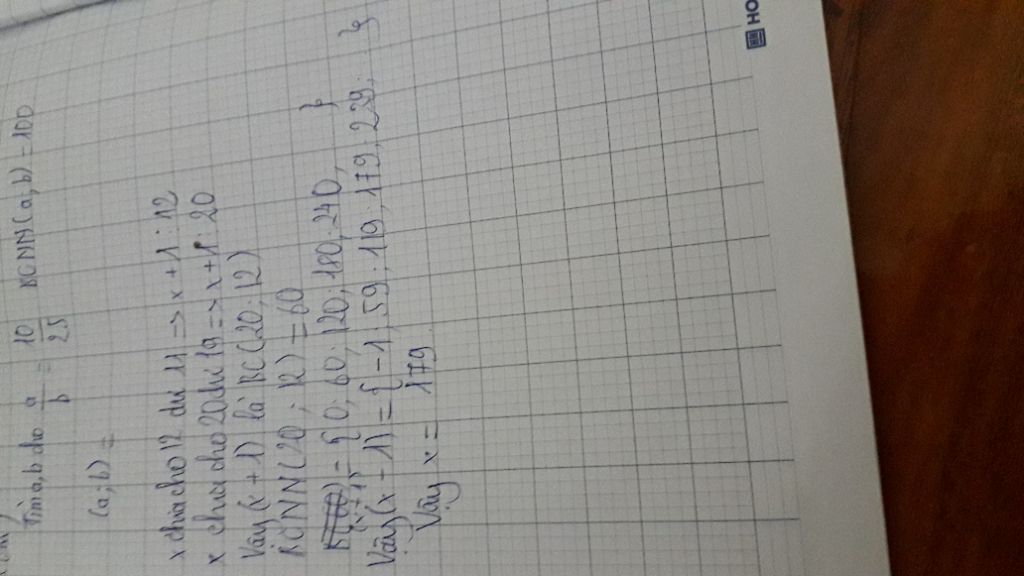 Tìm a, b cho a/b = 10/25 BCNN(a, b) = 100
(a; b) =
x chia cho 12 dư 11 => x + 1 : 12
x chia cho 20 dư 19 => x + 1 : 20
Vậy (x + 1) là BC(20; 12)
BCNN(20; 12) = 60
= { 0; 60; 120; 180; 240, }
Vậy (x - 1) = { -1; 59; 119; 179; 239; }
Vậy x = 179
HO